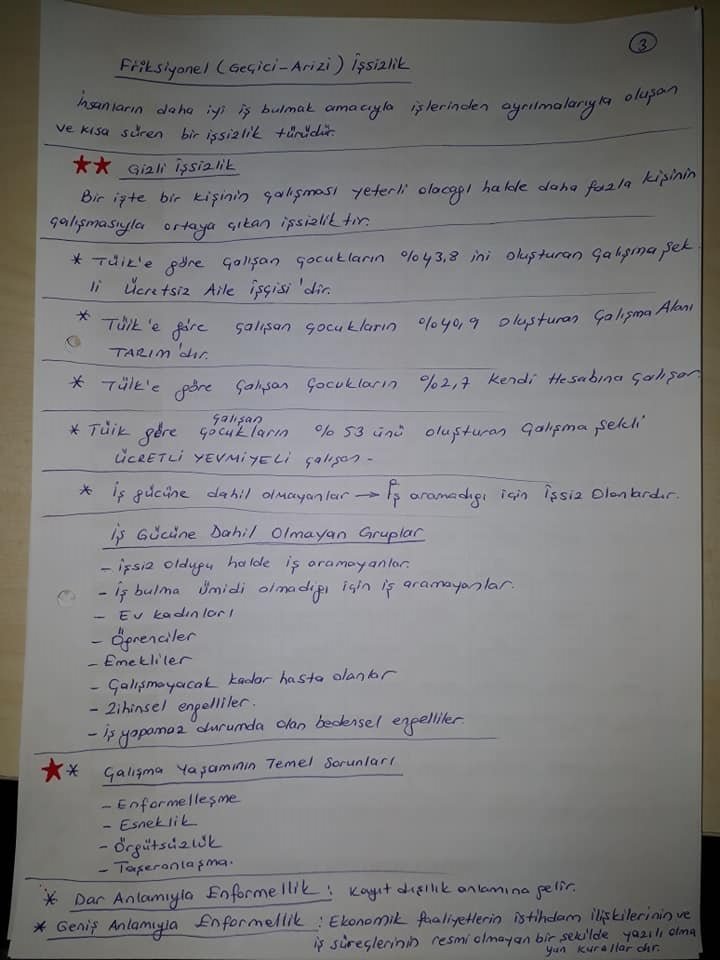 3
Friksiyonel (Geçici-Arizi) İşsizlik
İnsanların daha iyi iş bulmak amacıyla işlerinden ayrılmalarıyla oluşan
ve kısa süren bir işsizlik türüdür.
★★ Gizli İşsizlik
Bir işte bir kişinin çalışması yeterli olacağı halde daha fazla kişinin
çalışmasıyla ortaya çıkan işsizliktir.
* Tüik'e göre çalışan çocukların %43,8 ini oluşturan Çalışma Şek
li Ücretsiz Aile İşçisi'dir.
* Tüik'e göre çalışan çocukların %40,9 oluşturan Çalışma Alanı
TARIM'dır.
* Tüik'e göre Çalışan Çocukların %2,7 Kendi Hesabına Çalışar
* Tüik göre çalışan çocukların %53 ünü oluşturan Çalışma Şekli
ÜCRETLİ YEVMİYELİ çalışan-
* İş gücüne dahil olmayanlar → İş aramadığı için İşsiz Olanlardır.
İş Gücüne Dahil Olmayan Gruplar
- İşsiz olduğu halde iş aramayanlar.
- İş bulma Ümidi olmadığı için iş aramayanlar.
- Ev kadınları
- Öğrenciler
- Emekliler
- Çalışmayacak kadar hasta olanlar
- Zihinsel engelliler.
- İş yapamaz durumda olan bedensel engelliler.
★* Çalışma Yaşamının Temel Sorunları
- Enformelleşme
- Esneklik
- Örgütsüzlük
- Taşeronlaşma.
* Dar Anlamıyla Enformellik : Kayıt dışılık anlamına gelir.
* Geniş Anlamıyla Enformellik : Ekonomik faaliyetlerin istihdam ilişkilerinin ve
iş süreçlerinin resmi olmayan bir şekilde yazılı olma
yan kurallardır.